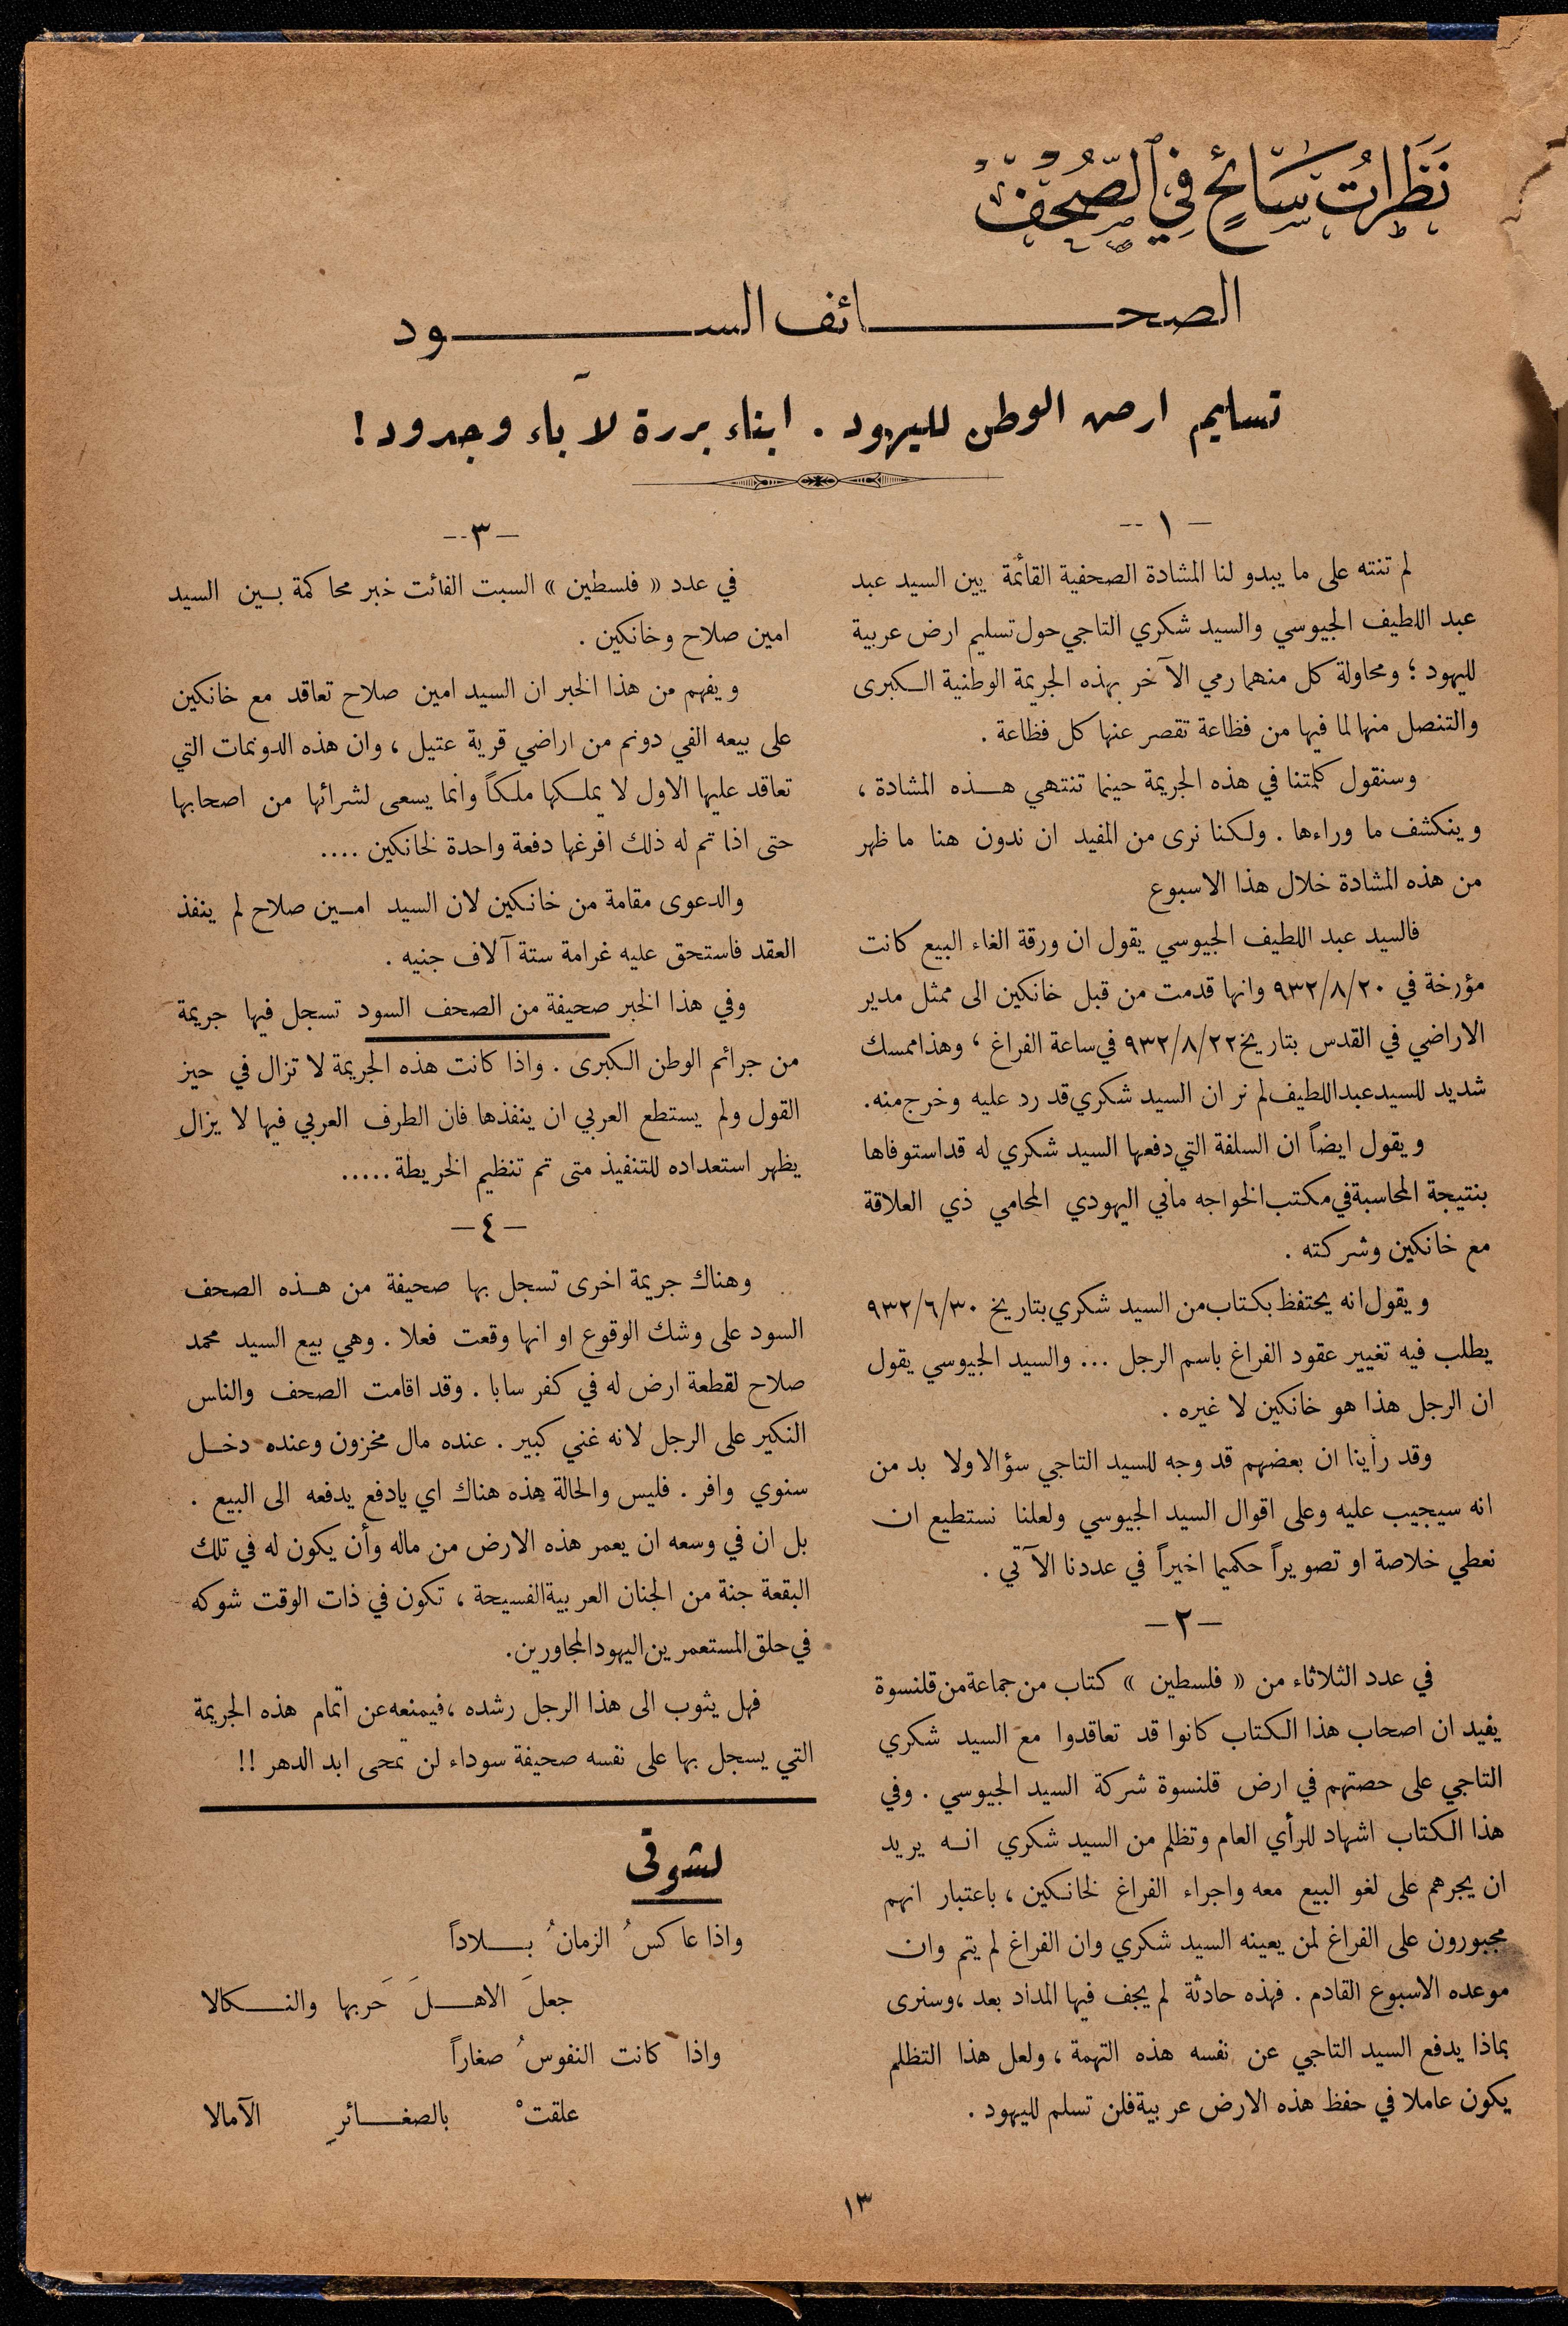 نَظَرَاتُ سَائِحٍ فِي الصُّحُفِ
الصحائف السود
تسليم ارض الوطن لليهود . ابناء بررة لآباء وجدود !
— ١ --
لم تنته على ما يبدو لنا المشادة الصحفية القائمة بين السيد عبد
عبد اللطيف الجيوسي والسيد شكري التاجي حول تسليم ارض عربية
لليهود ؛ ومحاولة كل منهما رمي الآخر بهذه الجريمة الوطنية الكبرى
والتنصل منها لما فيها من فظاعة تقصر عنها كل فظاعة .
وسنقول كلمتنا في هذه الجريمة حينما تنتهي هذه المشادة ،
وينكشف ما وراءها . ولكنا نرى من المفيد ان ندون هنا ما ظهر
من هذه المشادة خلال هذا الاسبوع
فالسيد عبد اللطيف الجيوسي يقول ان ورقة الغاء البيع كانت
مؤرخة في ٩٣٢/٨/٢٠ وانها قدمت من قبل خانكين الى ممثل مدير
الاراضي في القدس بتاريخ ٩٣٢/٨/٢٢ في ساعة الفراغ ، وهذا ممسك
شديد للسيد عبد اللطيف لم نر ان السيد شكري قد رد عليه وخرج منه.
ويقول ايضاً ان السلفة التي دفعها السيد شكري له قد استوفاها
بنتيجة المحاسبة في مكتب الخواجه ماني اليهودي المحامي ذي العلاقة
مع خانكين وشركته .
ويقول انه يحتفظ بكتاب من السيد شكري بتاريخ ٩٣٢/٦/٣٠
يطلب فيه تغيير عقود الفراغ باسم الرجل ... والسيد الجيوسي يقول
ان الرجل هذا هو خانكين لا غيره .
وقد رأينا ان بعضهم قد وجه للسيد التاجي سؤالا ولا بد من
انه سيجيب عليه وعلى اقوال السيد الجيوسي ولعلنا نستطيع ان
نعطي خلاصة او تصويراً حكميا اخيراً في عددنا الآتي .
— ٢ —
في عدد الثلاثاء من « فلسطين » كتاب من جماعة من قلنسوة
يفيد ان اصحاب هذا الكتاب كانوا قد تعاقدوا مع السيد شكري
التاجي على حصتهم في ارض قلنسوة شركة السيد الجيوسي . وفي
هذا الكتاب اشهاد للرأي العام وتظلم من السيد شكري انه يريد
ان يجرهم على لغو البيع معه واجراء الفراغ لخانكين ، باعتبار انهم
مجبورون على الفراغ لمن يعينه السيد شكري وان الفراغ لم يتم وان
موعده الاسبوع القادم . فهذه حادثة لم يجف فيها المداد بعد ، وسنرى
بماذا يدفع السيد التاجي عن نفسه هذه التهمة ، ولعل هذا التظلم
يكون عاملا في حفظ هذه الارض عربية فلن تسلم لليهود .
— ٣ --
في عدد « فلسطين » السبت الفائت خبر محاكمة بين السيد
امين صلاح وخانكين .
ويفهم من هذا الخبر ان السيد امين صلاح تعاقد مع خانكين
على بيعه الفي دونم من اراضي قرية عتيل ، وان هذه الدونمات التي
تعاقد عليها الاول لا يملكها ملكاً وانما يسعى لشرائها من اصحابها
حتى اذا تم له ذلك افرغها دفعة واحدة لخانكين ....
والدعوى مقامة من خانكين لان السيد امين صلاح لم ينفذ
العقد فاستحق عليه غرامة ستة آلاف جنيه .
وفي هذا الخبر صحيفة من الصحف السود تسجل فيها جريمة
من جرائم الوطن الكبرى . واذا كانت هذه الجريمة لا تزال في حيز
القول ولم يستطع العربي ان ينفذها فان الطرف العربي فيها لا يزال
يظهر استعداده للتنفيذ متى تم تنظيم الخريطة .....
— ٤ —
وهناك جريمة اخرى تسجل بها صحيفة من هذه الصحف
السود على وشك الوقوع او انها وقعت فعلا . وهي بيع السيد محمد
صلاح لقطعة ارض له في كفر سابا . وقد اقامت الصحف والناس
النكير على الرجل لانه غني كبير . عنده مال مخزون وعنده دخل
سنوي وافر . فليس والحالة هذه هناك اي يادفع يدفعه الى البيع .
بل ان في وسعه ان يعمر هذه الارض من ماله وأن يكون له في تلك
البقعة جنة من الجنان العربية الفسيحة ، تكون في ذات الوقت شوكه
في حلق المستعمرين اليهود المجاورين.
فهل يثوب الى هذا الرجل رشده ، فيمنعه عن اتمام هذه الجريمة
التي يسجل بها على نفسه صحيفة سوداء لن تمحى ابد الدهر !!
لشوقي
واذا عاكسُ الزمانُ بلاداً
جعلَ الاهلَ حَربها والنكالا
واذا كانت النفوسُ صغاراً
علقتْ بالصغائرِ الآمالا
١٣